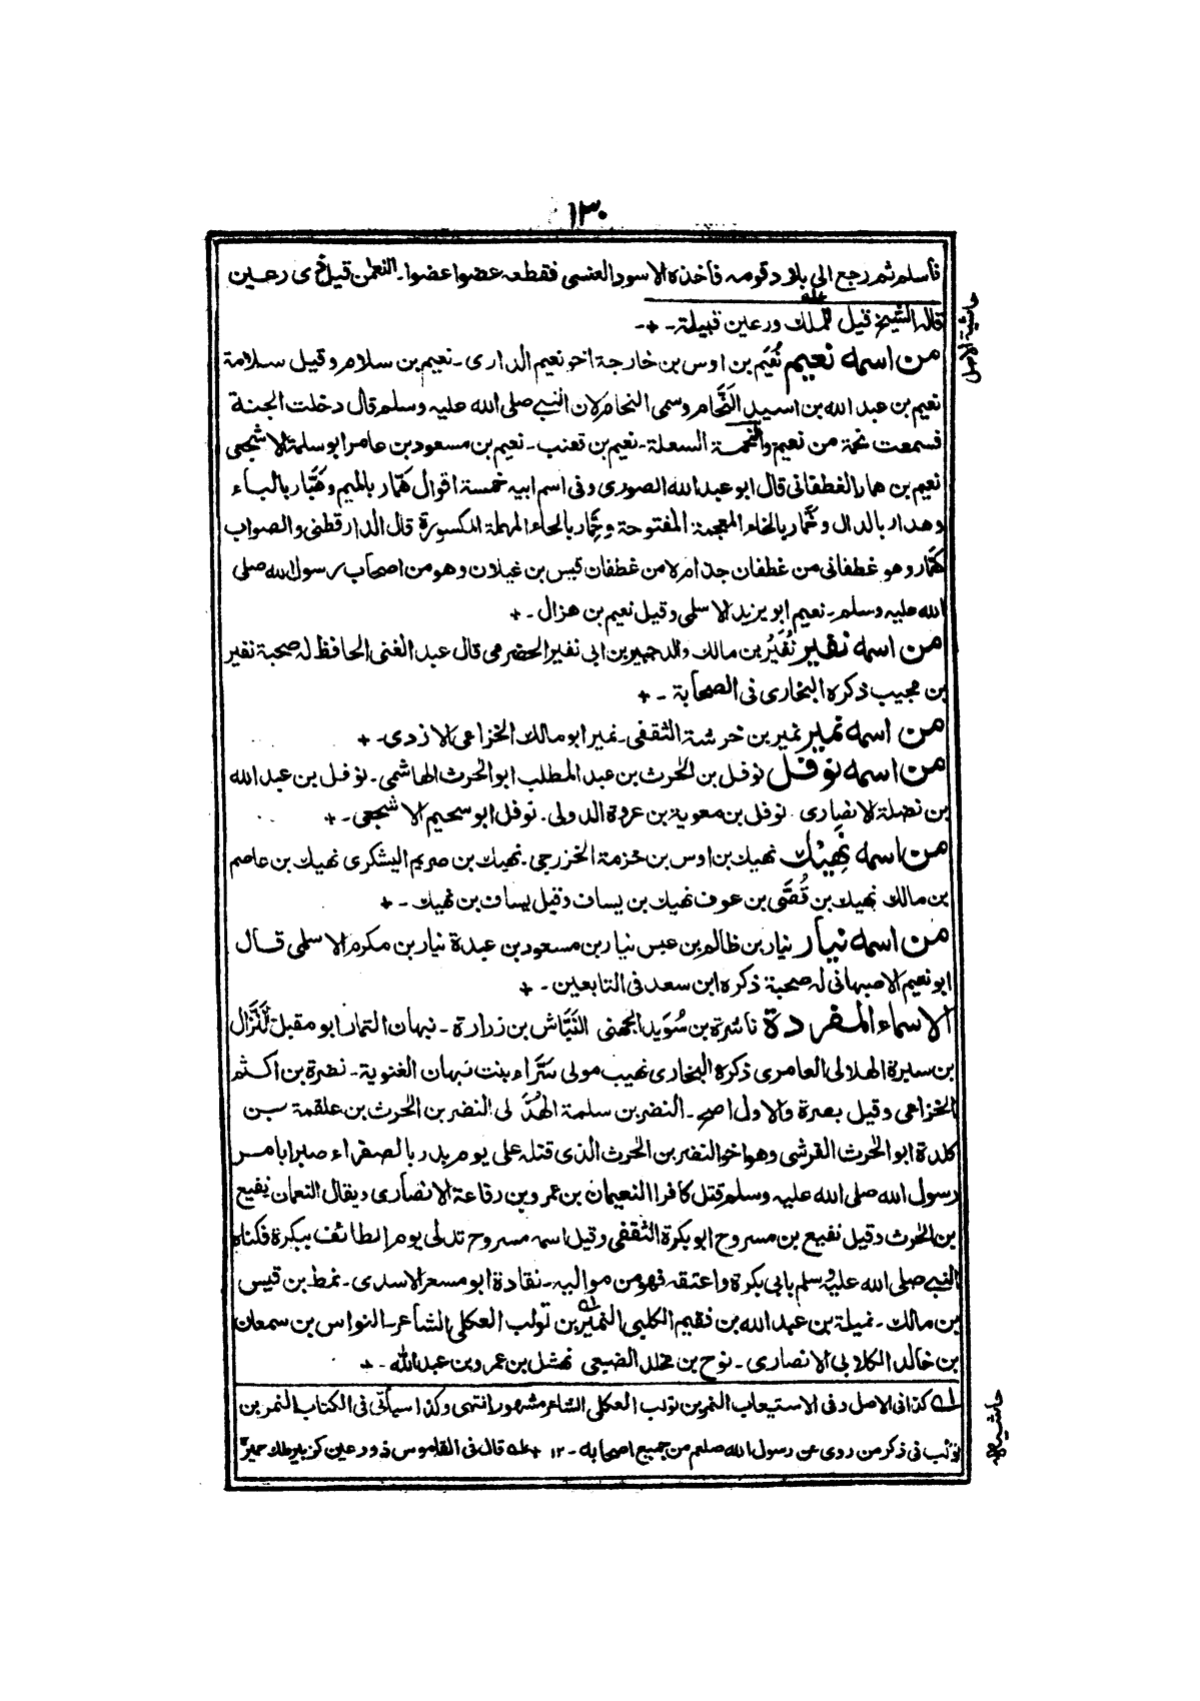 ١٣٠
فأسلم ثم رجع الى بلاد قومه فأخذه الاسود العنسى فقطعه عضوا عضوا ـ النعمن قيل ذى رعين
قاله الشيخ قيل لملك ورعين قبيلة ـ +ـ
حاشية الاصل
من اسمه نعيم نُعَيم بن اوس بن خارجة اخو نعيم الدارى ـ نعيم بن سلام وقيل سلامة
نعيم بن عبد الله بن اسيد النَّحَّام وسمى النحام لان النبى صلى الله عليه وسلم قال دخلت الجنة
فسمعت نحمة من نعيم والنحمة السعلة ـ نعيم بن قعنب ـ نعيم بن مسعود بن عامر ابو سلمة الاشجعى
نعيم بن همار الغطفانى قال ابو عبد الله الصورى وفى اسم ابيه خمسة اقوال همّار بالميم وهبّار بالباء
وهدار بالدال وخمّار بالخاء المعجمة المفتوحة وحِمّار بالحاء المهملة المكسورة قال الدارقطنى والصواب
همّار وهو غطفانى من غطفان جذام لا من غطفان قيس بن غيلان وهو من اصحاب رسول الله صلى
الله عليه وسلم ـ نعيم ابو يزيد الاسلمى وقيل نعيم بن هزال ـ +
من اسمه نفير نُفَيرُ بن مالك والد جبير بن ابى نفير الحضرمى قال عبد الغنى الحافظ له صحبة نفير
بن مجيب ذكره البخارى فى الصحابة ـ +
من اسمه نمير نمير بن خرشة الثقفى ـ نمير ابو مالك الخزاعى الازدى ـ +
من اسمه نوفل نوفل بن الحرث بن عبد المطلب ابو الحرث الهاشمى ـ نوفل بن عبد الله
بن نضلة الانصارى ـ نوفل بن معوية بن عروة الدولى ـ نوفل ابو سحيم الاشجعى ـ +
من اسمه نهيك نهيك بن اوس بن خزمة الخزرجى ـ نهيك بن صريم اليشكرى نهيك بن عاصم
بن مالك نهيك بن قُصَى بن عوف نهيك بن يساف وقيل يساف بن نهيك ـ +
من اسمه نيار نيار بن ظالم بن عبس نيار بن مسعود بن عبدة نيار بن مكرم الاسلمى قال
ابو نعيم الاصبهانى له صحبة ذكره ابن سعد فى التابعين ـ +
الاسماء المفردة ناشرة بن سُوَيد الجهنى النَبَّاش بن زرارة ـ نبهان التمار ابو مقبل النَّزَّال
بن سبرة الهلالى العامرى ذكره البخارى نصيب مولى سَرَّاء بنت نبهان الغنوية ـ نضرة بن اكثم
الخزاعى وقيل بصرة والاول اصح ـ النضر بن سلمة الهُذَلى النضر بن الحرث بن علقمة بن
كلدة ابو الحرث القرشى وهو اخو النضر بن الحرث الذى قتله على يوم بدر بالصفراء صبرا بامر
رسول الله صلى الله عليه وسلم قتل كافرا النعيمان بن عمرو بن رفاعة الانصارى ويقال النعمان نفيع
بن الحرث وقيل نفيع بن مسروح ابو بكرة الثقفى وقيل اسمه مسروح تدلى يوم الطائف ببكرة فكناه
النبى صلى الله عليه وسلم بابى بكرة واعتقه فهو من مواليه ـ نقادة ابو مسعر الاسدى ـ نمط بن قيس
بن مالك ـ نميلة بن عبد الله بن فقيم الكلبى النمير بن تولب العكلى الشاعر ـ النواس بن سمعان
بن خالد الكلابى الانصارى ـ نوح بن مخلد الضبعى نهشل بن عمرو بن عبد الله ـ +
له كذا فى الاصل وفى الاستيعاب النمر بن تولب العكلى الشاعر مشهور انتهى وكذا سيأتى فى الكتاب النمر بن
تولب فى ذكر من روى عن رسول الله صلعم من جميع اصحابه ـ ١٢ + قال فى القاموس ذو رعين كزبير ملك حمير
حاشية